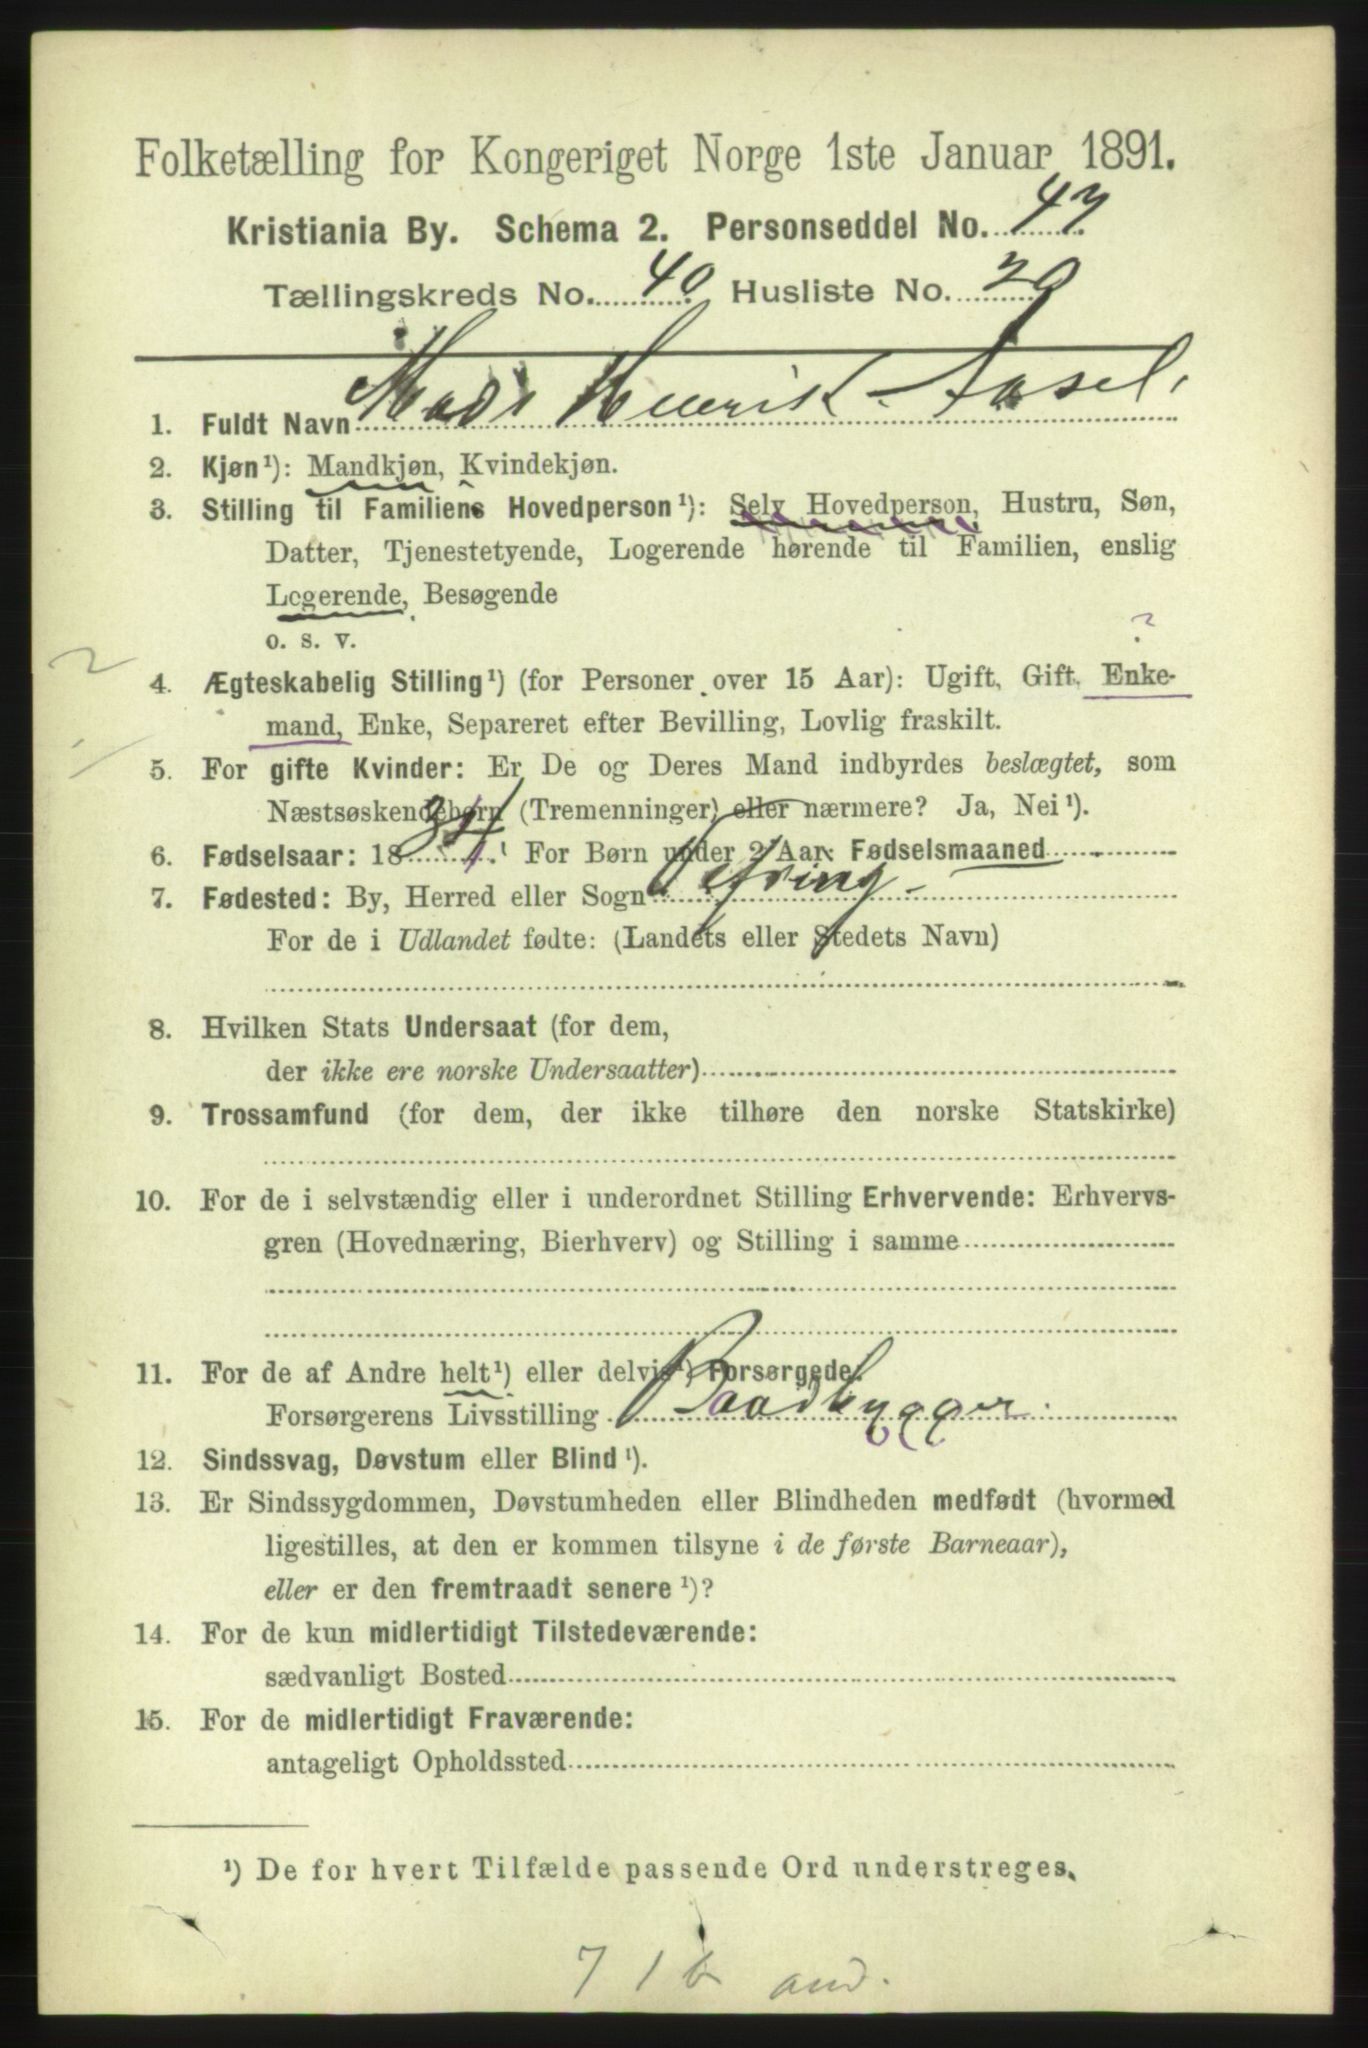 Folketælling for Kongeriget Norge 1ste Januar 1891.
Kristiania By. Schema 2. Personseddel No. 47
Tællingskreds No. 40 Husliste No. 29
1. Fuldt Navn Mads Henrik Aasel.
2. Kjøn¹): Mandkjøn, Kvindekjøn.
3. Stilling til Familiens Hovedperson¹): Selv Hovedperson, Hustru, Søn,
Datter, Tjenestetyende, Logerende hørende til Familien, enslig
Logerende, Besøgende
o. s. v.
?
2
4. Ægteskabelig Stilling¹) (for Personer over 15 Aar): Ugift, Gift, Enke-
mand, Enke, Separeret efter Bevilling, Lovlig fraskilt.
5. For gifte Kvinder: Er De og Deres Mand indbyrdes beslægtet, som
Næstsøskendebørn (Tremenninger) eller nærmere? Ja, Nei¹).
6. Fødselsaar: 1834 For Børn under 2 Aar: Fødselsmaaned
7. Fødested: By, Herred eller Sogn
For de i Udlandet fødte: (Landets eller Stedets Navn)
8. Hvilken Stats Undersaat (for dem,
der ikke ere norske Undersaatter)
9. Trossamfund (for dem, der ikke tilhøre den norske Statskirke)
10. For de i selvstændig eller i underordnet Stilling Erhvervende: Erhvervs-
gren (Hovednæring, Bierhverv) og Stilling i samme
11. For de af Andre helt¹) eller delvis¹) Forsørgede:
Forsørgerens Livsstilling Baadbygger.
12. Sindssvag, Døvstum eller Blind¹).
13. Er Sindssygdommen, Døvstumheden eller Blindheden medfødt (hvormed
ligestilles, at den er kommen tilsyne i de første Barneaar),
eller er den fremtraadt senere¹)?
14. For de kun midlertidigt Tilstedeværende:
sædvanligt Bosted
15. For de midlertidigt Fraværende:
antageligt Opholdssted
¹) De for hvert Tilfælde passende Ord understreges.
716 and.